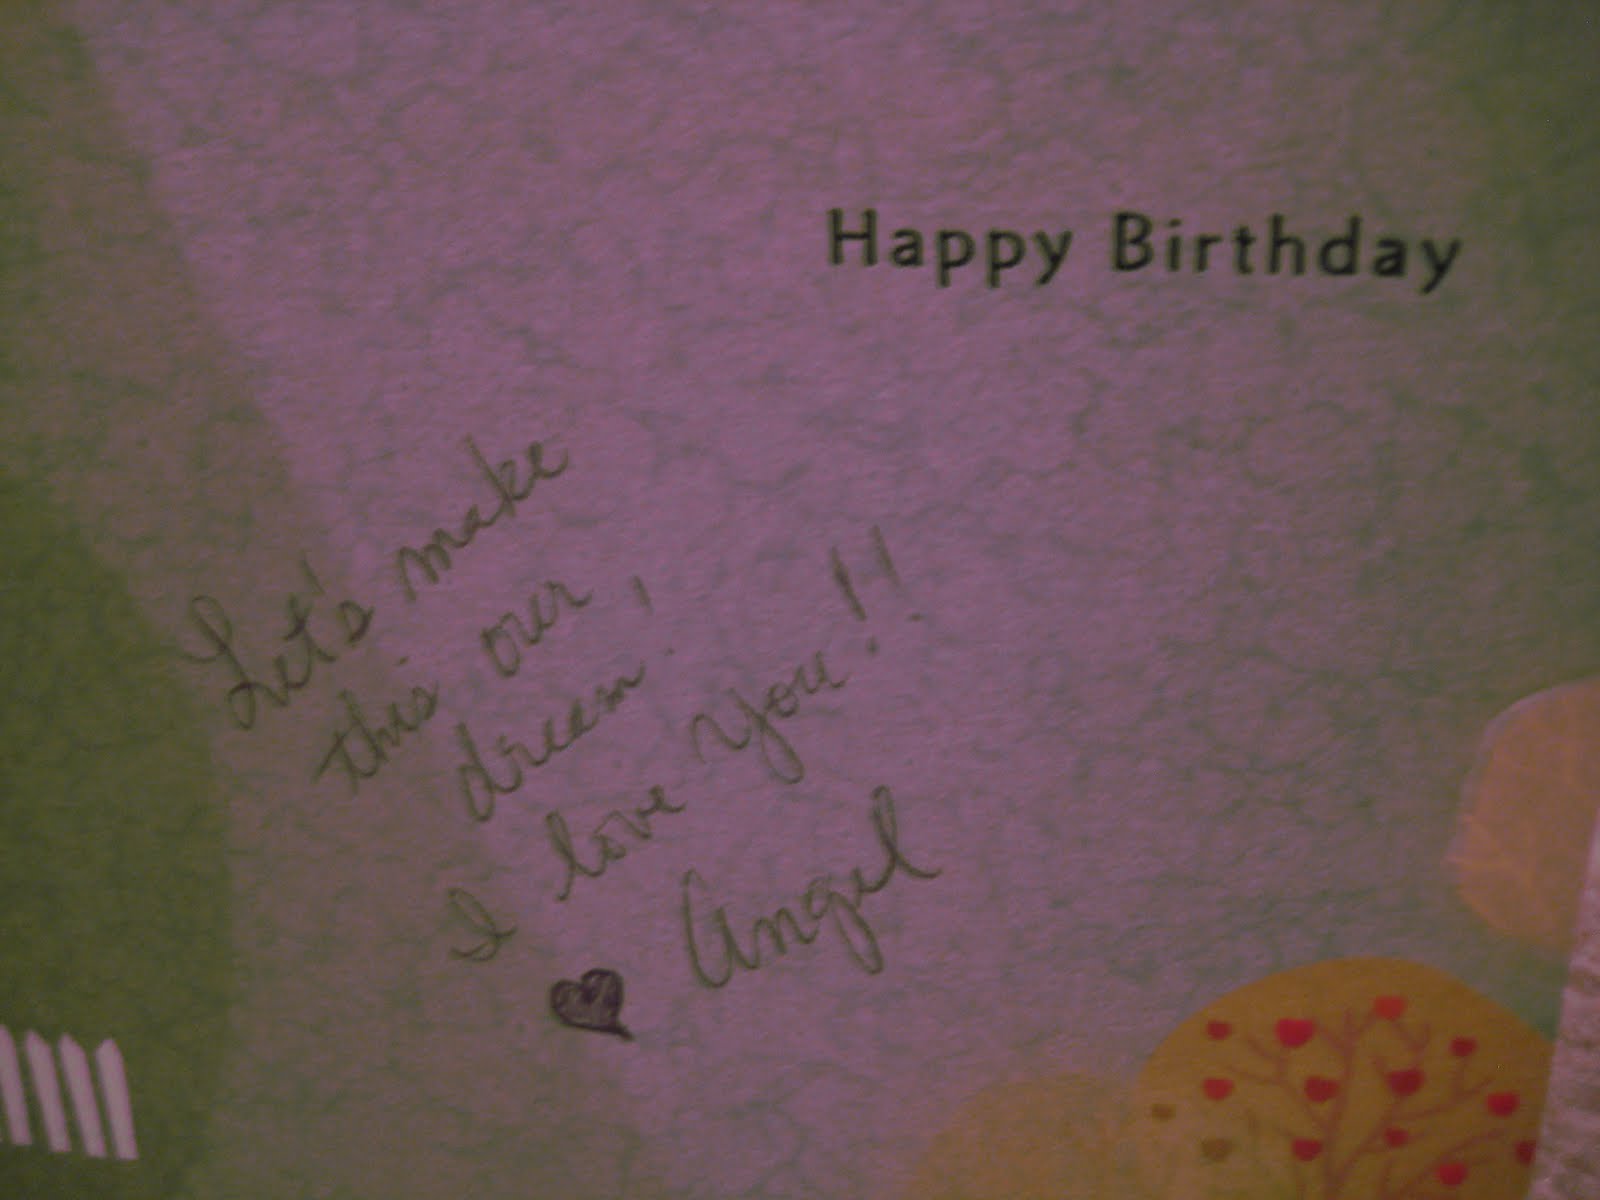 Happy Birthday
Let's make
this our
dream!
I love you!!
♥ Angel